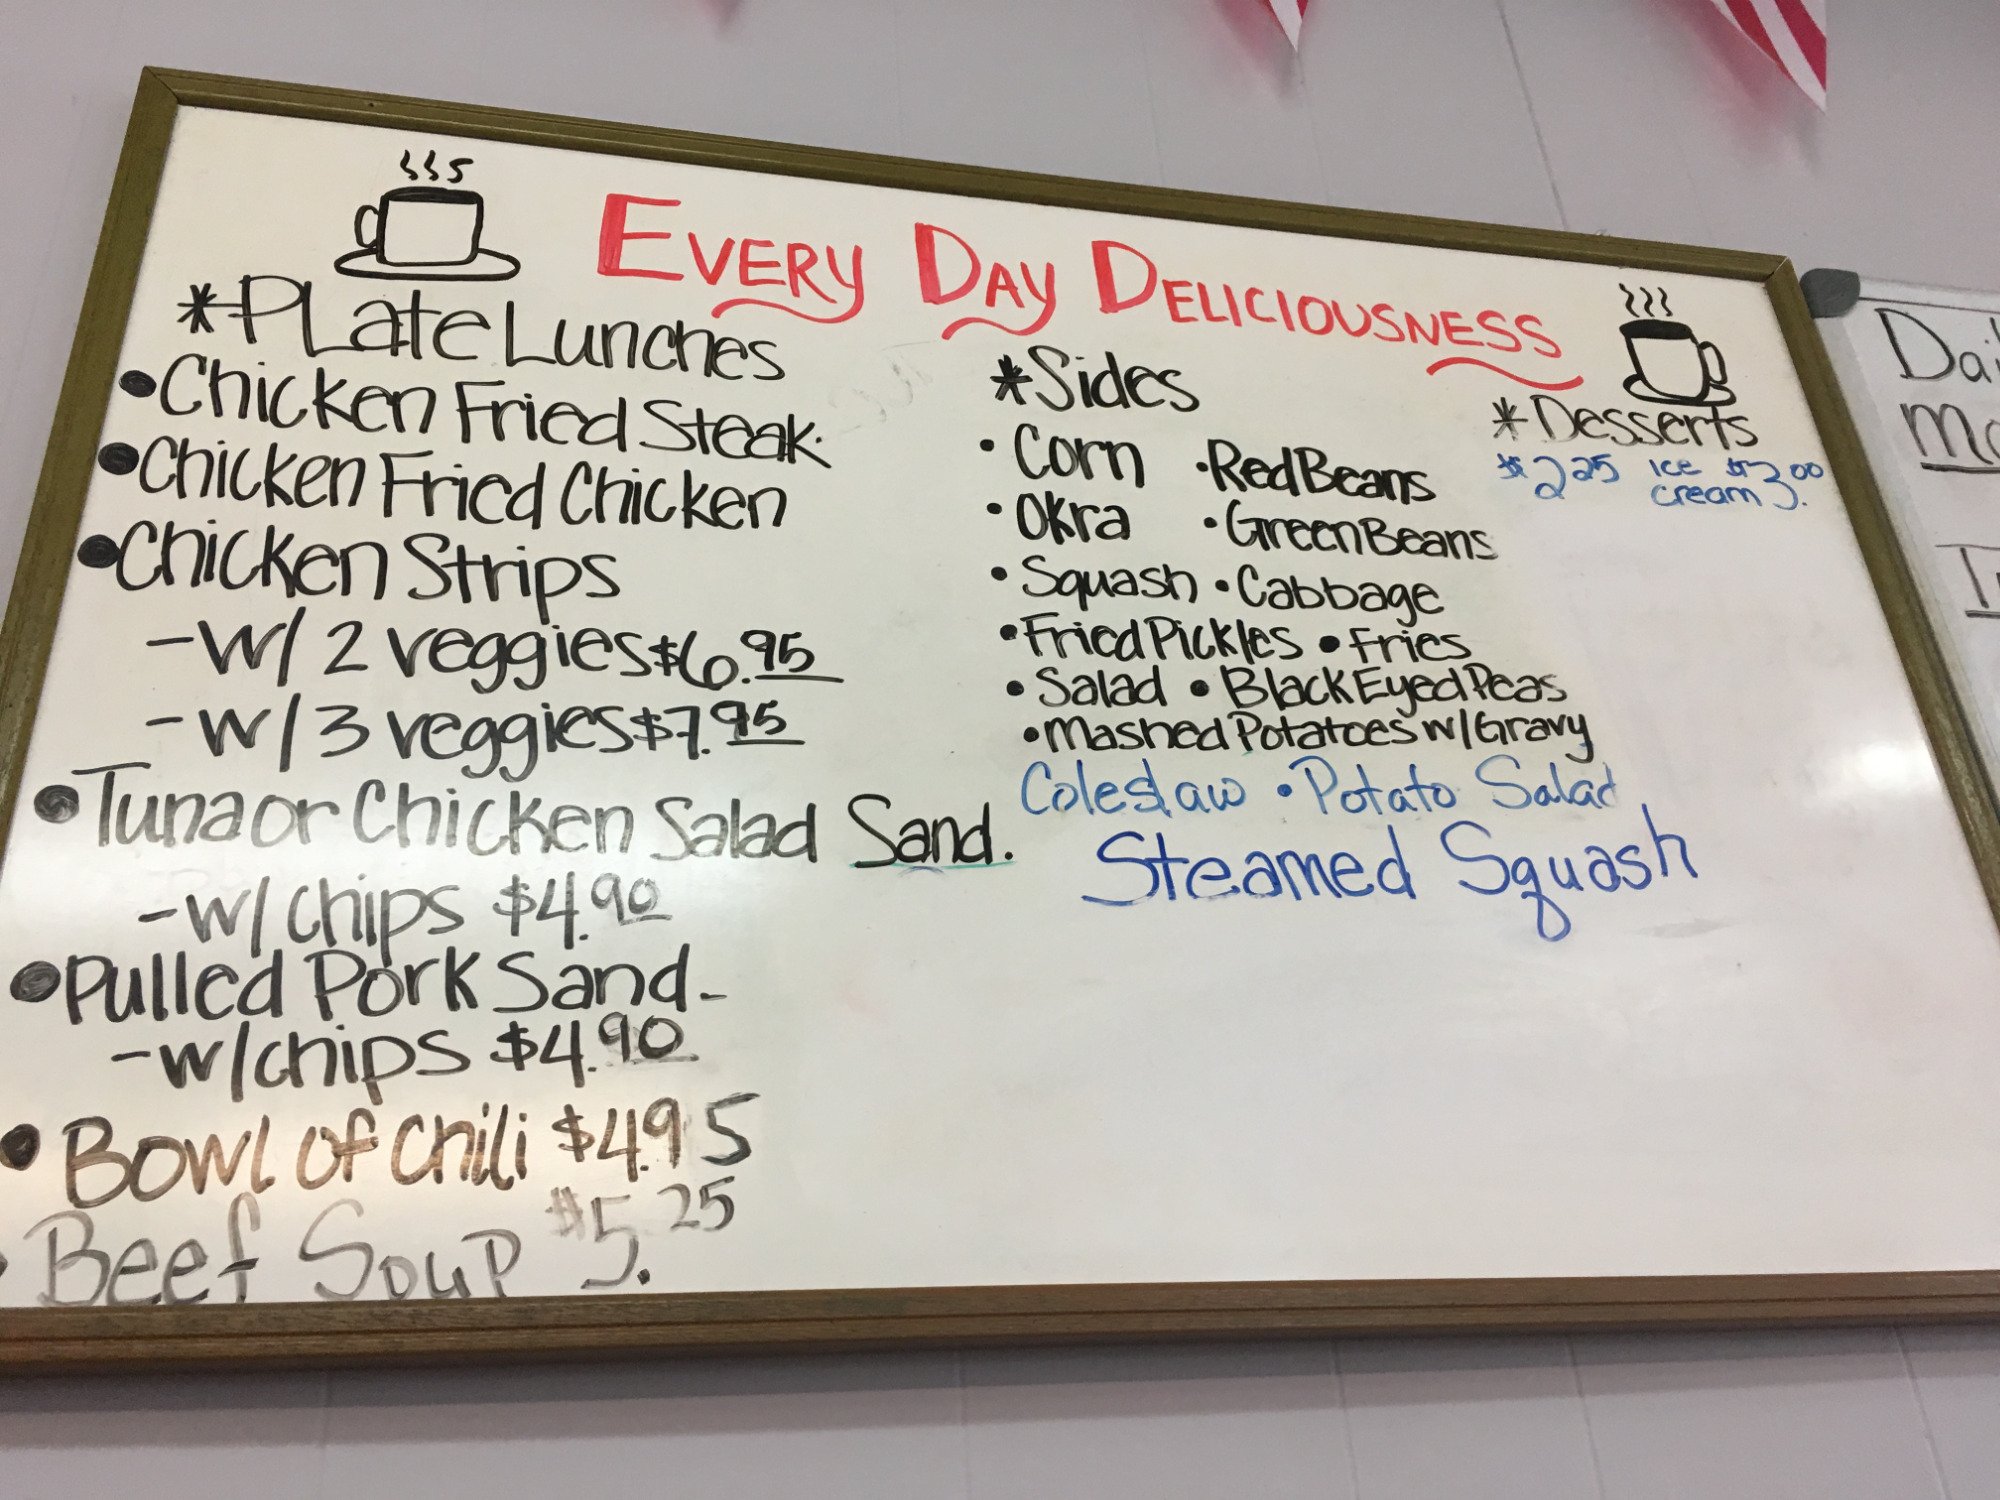 EVERY DAY DELICIOUSNESS
*PLate Lunches
•Chicken Fried Steak.
•Chicken Fried Chicken
•Chicken Strips
-w/ 2 veggies $6.95
-w/ 3 veggies $7.95
•Tuna or Chicken Salad Sand.
-w/ chips $4.90
•Pulled Pork Sand-
-w/chips $4.90
•Bowl of Chili $4.95
•Beef Soup $5.25
*Sides
•Corn •Red Beans
•Okra •Green Beans
•Squash •Cabbage
•Fried Pickles •Fries
•Salad •Black Eyed Peas
•Mashed Potatoes w/Gravy
Coleslaw •Potato Salad
Steamed Squash
*Desserts
$2.25 ice cream $3.00